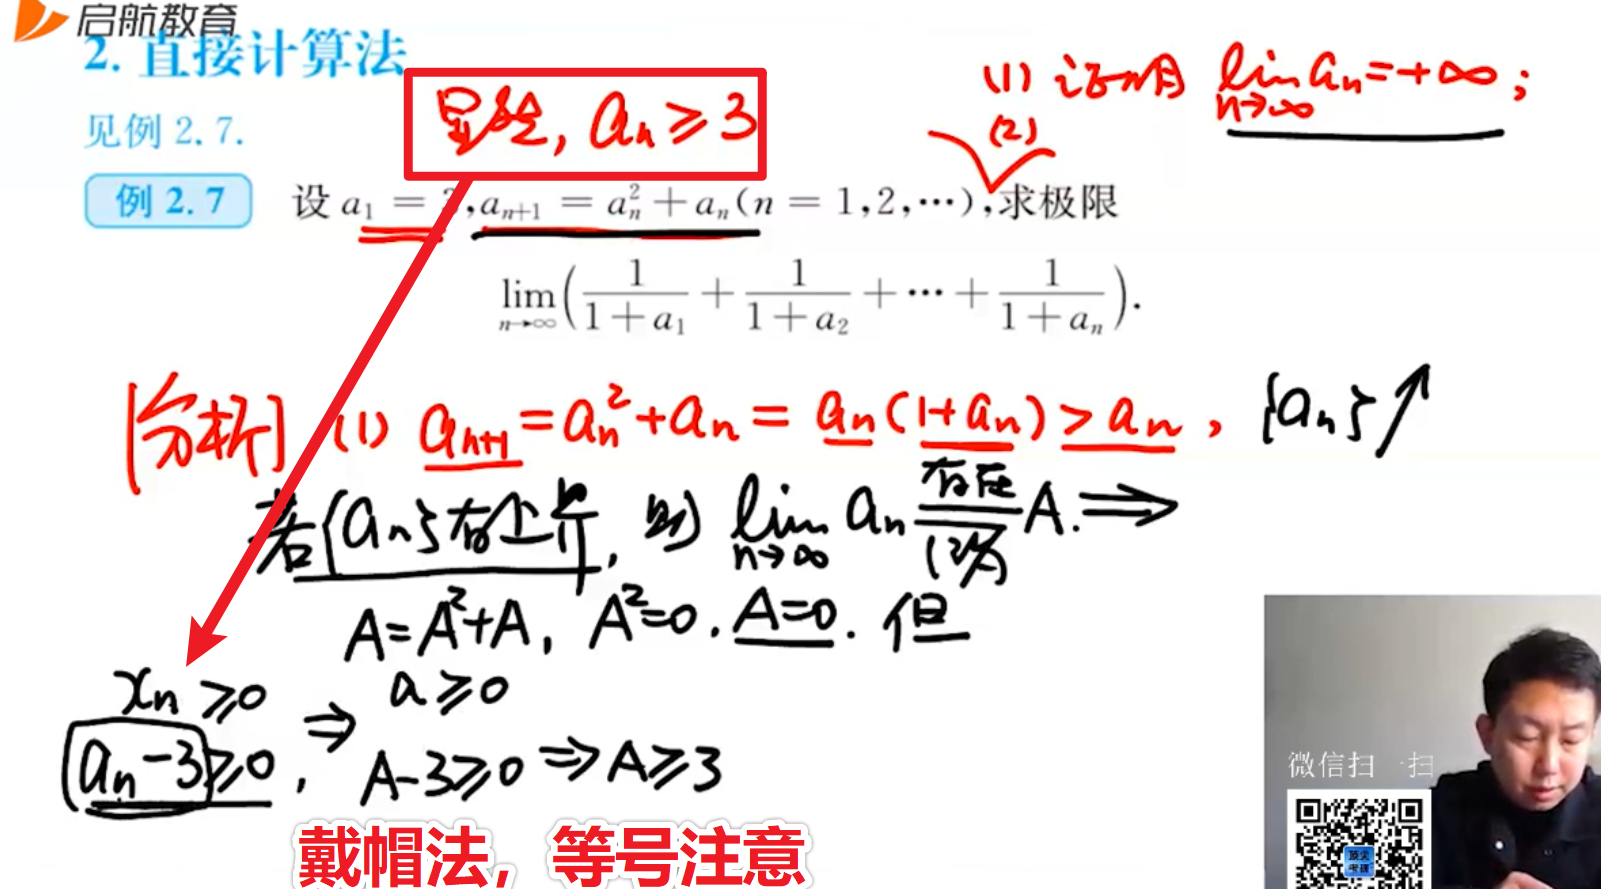 启航教育
2. 直接计算法
显然, aₙ ≥ 3
(1) 证明 lim aₙ = +∞;
n→∞
见例 2.7.
(2)
例 2.7 设 a₁ = 3, aₙ₊₁ = aₙ² + aₙ (n = 1,2,⋯), 求极限
lim (1/(1+a₁) + 1/(1+a₂) + ⋯ + 1/(1+aₙ)).
n→∞
[分析] (1) aₙ₊₁ = aₙ² + aₙ = aₙ(1+aₙ) > aₙ, {aₙ}↗
若{aₙ}有上界, 则 lim aₙ 存在 A. ⇒
n→∞ 记为
A = A² + A, A² = 0. A = 0. 但
xₙ ≥ 0 ⇒ a ≥ 0
aₙ - 3 ≥ 0, A - 3 ≥ 0 ⇒ A ≥ 3
戴帽法, 等号注意
微信扫一扫
顶尖
考研